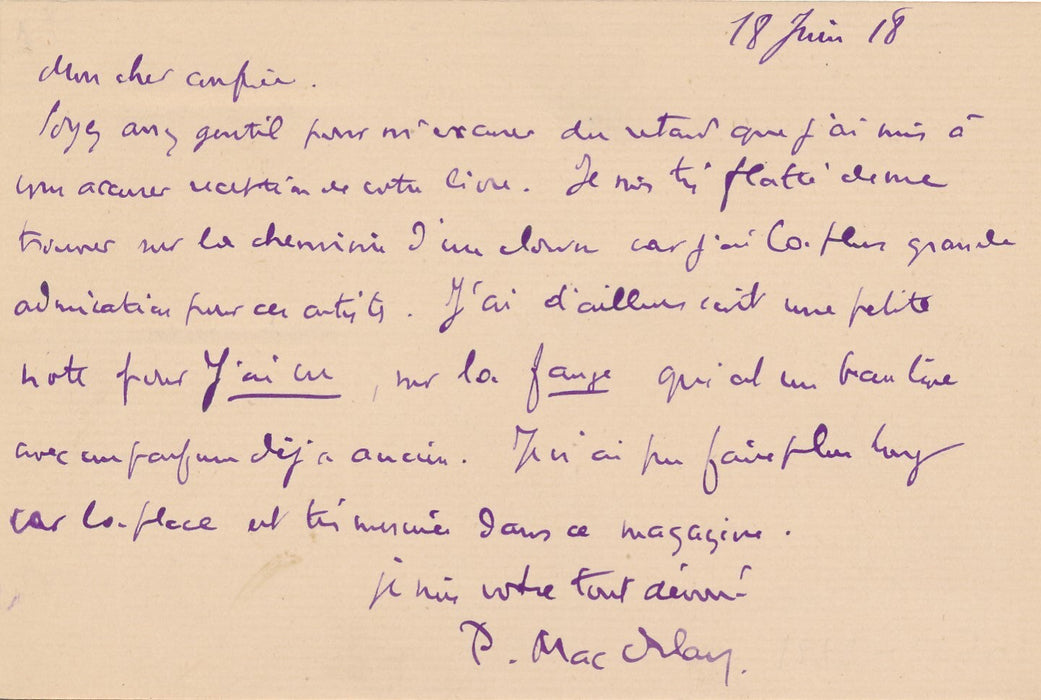 18 Juin 18
Mon cher confrère.
Soyez assez gentil pour m'excuser du retard que j'ai mis à
vous accuser reception de votre livre. Je suis très flatté de me
trouver sur la cheminée d'un clown car j'ai la plus grande
admiration pour ces artistes. J'ai d'ailleurs écrit une petite
note pour J'ai vu, sur la fange qui est un beau livre
avec un parfum déjà ancien. Je n'ai pu faire plus long
car la place est très mesurée dans ce magazine.
je suis votre tout dévoué
P. Mac Orlan.